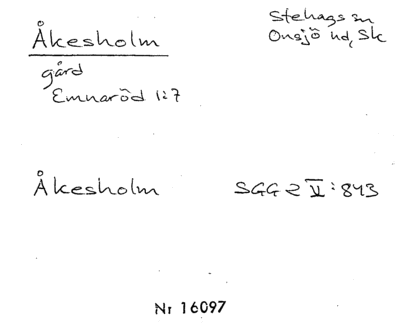 Åkesholm
Stehags sn
Onsjö hd, Sk
gård
Emnaröd 1:7
Åkesholm
SGG 2 V:843
Nr 16097